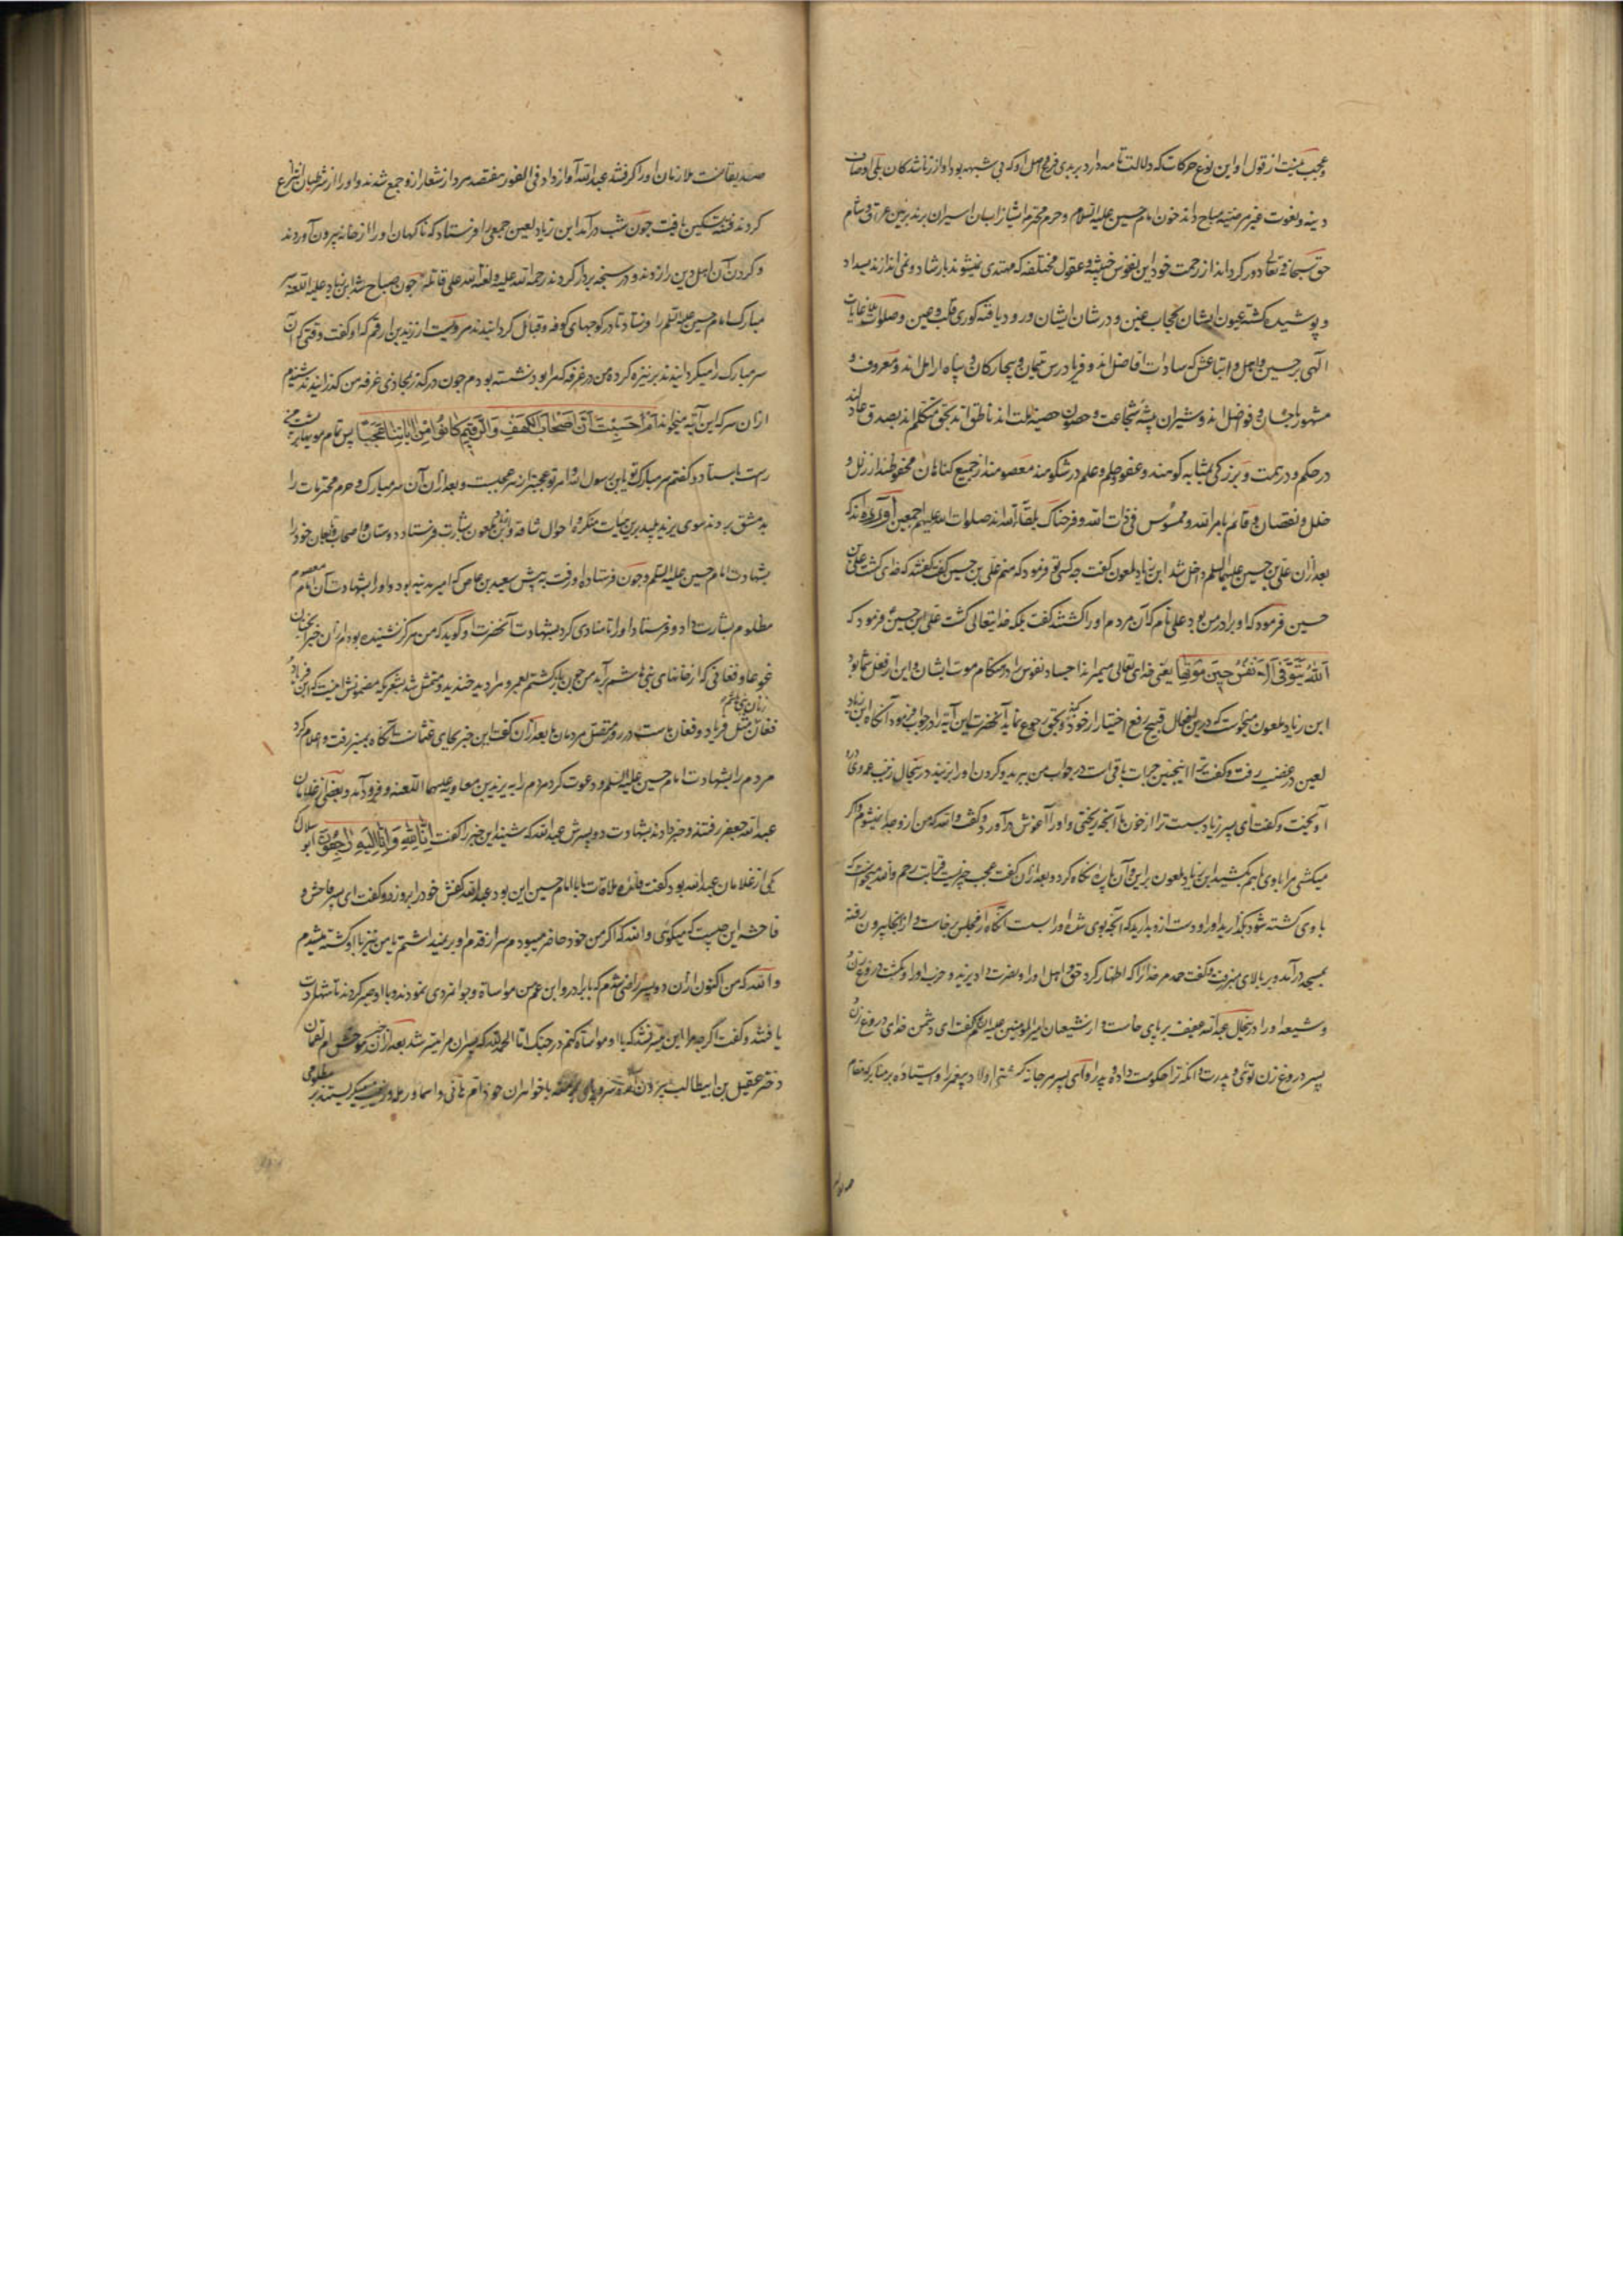 و عجب نیست از قول او این نوع حرکات که دلالت تامه دارد بر بدی فرع و اصل او که بی شبهه بود او از زناشدکان
حق سبحانه و تعالی دور کرداند از رحمت خود این نفوس خبیثه و عقول مختلفه که مهتدی نمیشوند بارشاد و نمی اندازند
و پوشیده کشته عیون ایشان بحجاب و در شان ایشان ورود یافته کوری قلب و عین و صلوات
الهی بر حسین و اهل و اتباعش که سادات افاضل اند و فریادرس و بیچارکان و پناه ارامل اند و معروف و
مشهور باحسان و فواضل اند و شیران بیشه شجاعت و حصون حصینه ملت اند ناطق اند بحق متکلم اند بصدق
خلل و نقصان و قائم بامر الله و ممسوس فی ذات الله و فرحناک بلقاء الله اند صلوات الله علیهم اجمعین آورده اند که
بعد از آن علی بن حسین علیهما السلم داخل شد ابن زیاد ملعون کفت چه کسی تو فرمود که منم علی بن حسین کفت کفتند که خدای کشت علی بن
حسین فرمود که او برادر من بود علی نام که آن مردم او را کشتند کفت بلکه خدایتعالی کشت علی بن حسین فرمود که
الله یتوفی الانفس حین موتها یعنی خدای تعالی میمیراند اجساد نفوس را در هنکام موت ایشان و این از فعل شما بود
ابن زیاد ملعون میخواست که درین افعال قبیح رفع اختیار از خود کند و بحق رجوع نماید آنحضرت این آیه را در جواب فرمود آنکاه ابن زیاد
لعین در غضب رفت و کفت ترا اینچنین جرات باقی است در جواب من ببرید و کردن او را بزنید در اینحال زینب
آویخت و کفت ای پسر زیاد بست ترا از خون ما آنچه ریختی و او را در آغوش درآورد و کفت والله که من از و جدا نمیشوم و اکر
میکشی مرا با وی هم بکش ابن زیاد ملعون براین و آن پاره نکاه کرد و بعد از آن کفت عجب چیزیست قرابت رحم والله میخواست که
با وی کشته شود بکذارید او را و دست ازو بدارید که آنچه بوی شده او را بس است آنکاه از مجلس برخاست و از آنجا بیرون رفته
بمسجد درآمد و بر بالای منبر رفت و کفت حمد مر خدا را که اظهار کرد حق و اهل او را و نصرت داد یزید و حزب او را و کشت دروغ زن
و شیعه او را در اینحال عبدالله عفیف برپای خاست و از شیعیان امیر المومنین علیه السلم کفت ای دشمن خدای دروغ زن
پسر دروغ زن توئی و پدرت و آنکه ترا حکومت داد و پدر او ای پسر مرجانه کشتی اولاد پیغمبر را و ایستاده بر منابر که مقام
صدیقانست ملازمان او را کرفتند عبدالله آواز داد فی الفور هفتصد مرد از شعار ازد جمع شدند و او را از شرطیان انتزاع
کردند فتنه تسکین یافت چون شب درآمد ابن زیاد لعین جمعی را فرستاد که ناکهان او را از خانه بیرون آوردند
و کردن آن اهل دین را زدند و در سبخه بردار کردند رحمة الله علیه و لعنة الله علی قاتله چون صباح شد ابن زیاد علیه اللعنه سر
مبارک امام حسین علیه السلم را فرستاد تا در کوچهای کوفه و قبائل کردانیدند مرویست از زید بن ارقم که او کفت وقتی که آن
سر مبارک را میکردانیدند بر نیزه کرده من در غرفه که مرا بود نشسته بودم چون در کذر محاذی غرفه من کذرانیدند شنیدم
از آن سر که این آیه میخواند ام حسبت ان اصحاب الکهف والرقیم کانوا من ایاتنا عجبا پس تمام مویهای
راست بایستاد و کفتم سر مبارک تو یابن رسول الله و امر تو عجبتر از هر عجبست و بعد از آن آن سر مبارک و حرم محترمات را
بدمشق بردند سوی یزید پلید برین هیات منکره و احوال شاقه و ابن زیاد ملعون بشارت فرستاد دوستان و اصحاب خود را
بشهادت امام حسین علیه السلم و چون فرستاده او رفت به پیش سعید بن عاص که امیر مدینه بود و او را بشهادت آن امام معصوم
مظلوم بشارت داد و فرستاد او را تا منادی کرد بشهادت آنحضرت او کوید که من هرکز نشنیده بودم
غوغا و فغانی که از خانهای بنی هاشم برآمد من چون بازکشتم عمرو مرا دید خندید و متمثل شد بشعری که مضمونش اینست که این فریاد و
زنان بنی هاشم
فغان مثل فریاد و فغان ماست در روز قتل مردمان ما بعد از آن کفت این خبر بجای عثمانست آنکاه بمنبر رفت و اعلام کرد
مردم را بشهادت امام حسین علیه السلم و دعوت کرد مردم را به یزید بن معاویه علیهما اللعنه و فرود آمد و بعضی از غلامان
عبدالله جعفر رفتند و خبر دادند بشهادت دو پسرش عبدالله که شنید این خبر را کفت انا لله وانا الیه راجعون
یکی از غلامان عبدالله بود کفت ملاقات ما با امام حسین این بود عبدالله کفش خود را برو زد و کفت ای پسر فاحش و
فاحشه این چیست که میکوئی والله که اکر من خود حاضر میبودم سر از قدم او برنمیداشتم تا من نیز با او کشته میشدم
والله که من اکنون از آن دو پسر راضی شدم که با برادر و ابن عم من مواساة و جوانمردی نمودند و با او صبر کردند تا شهادت
یافتند و کفت اکرچه مرا این میسر نشد که با او مواساة کنم در جنک اما الحمد لله که پسران مرا میسر شد بعد از آن
دختر عقیل بن ابیطالب بیرون آمد با خواهران خود ام هانی و اسما و رمله و زینب میکریستند بر